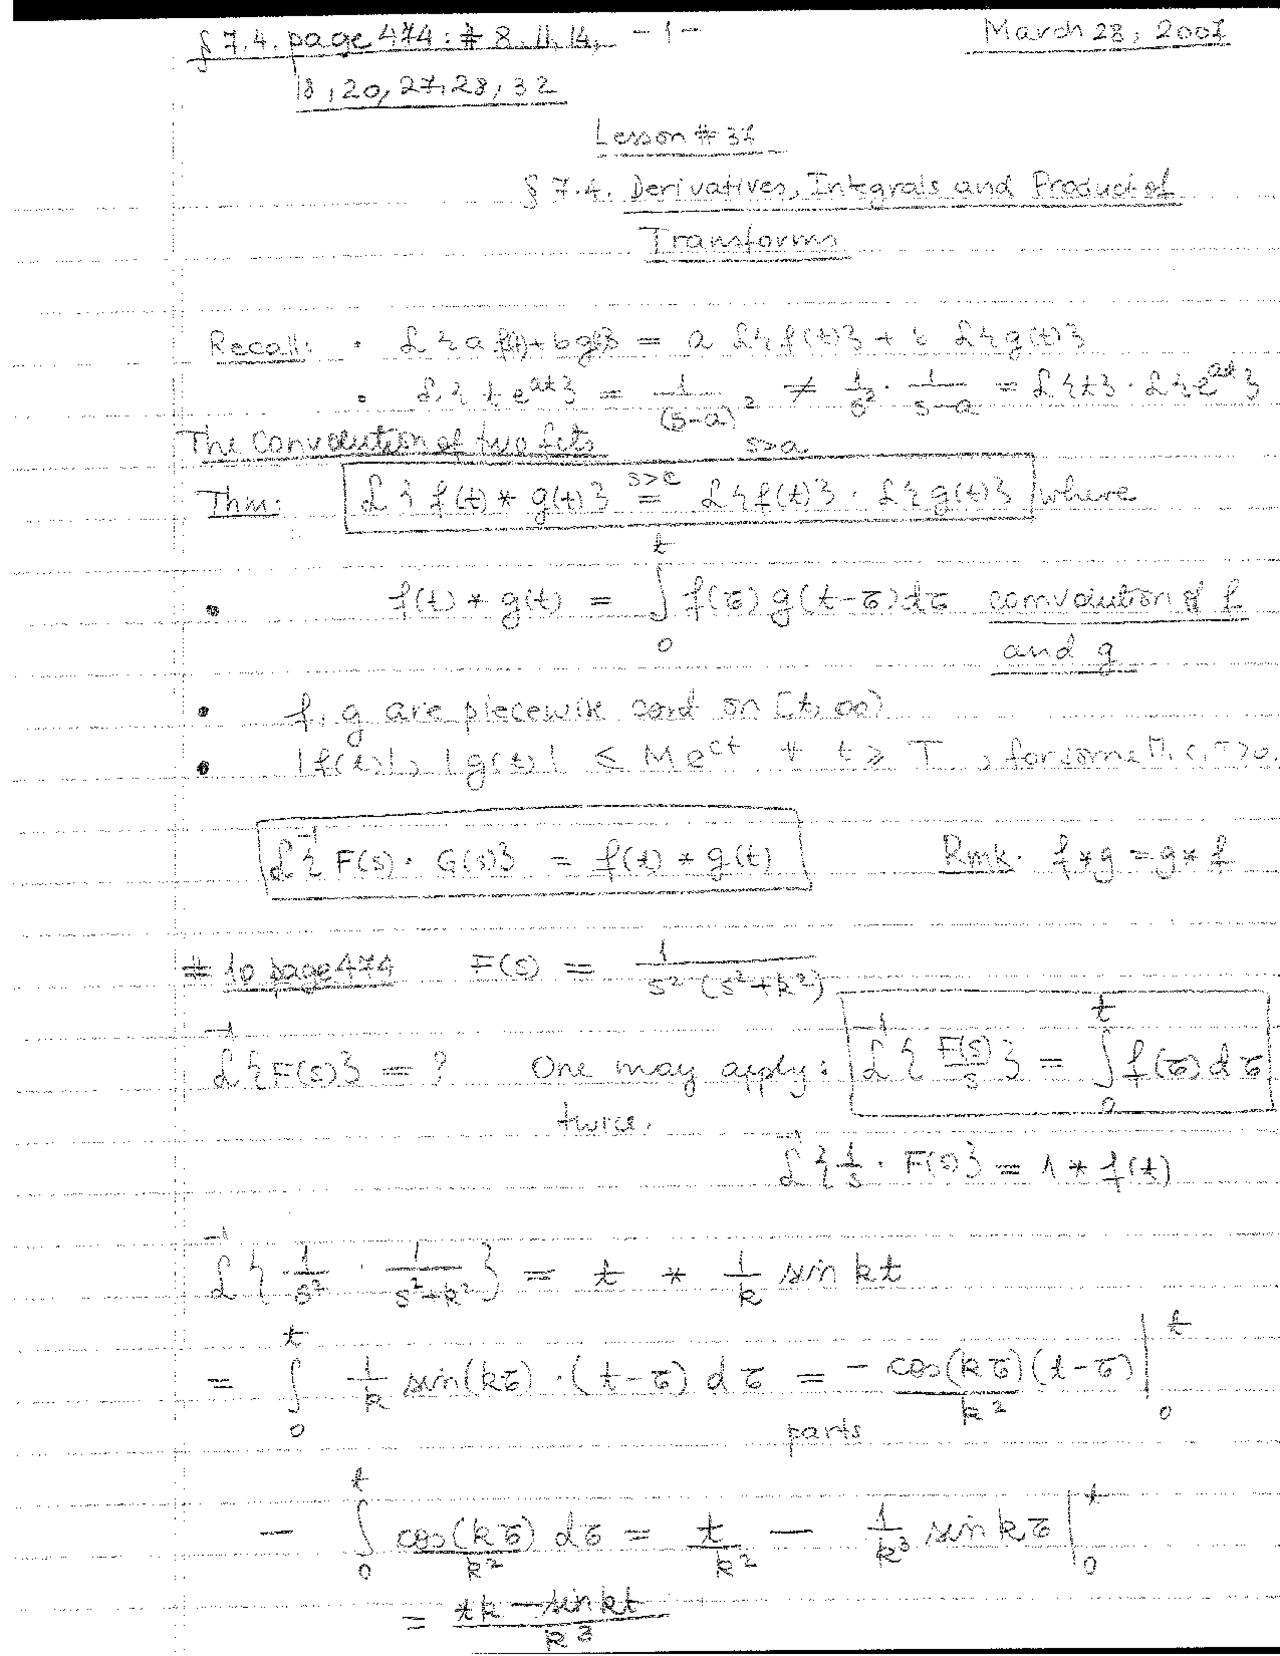 § 7.4. page 474: # 8, 11, 14, - 1 - March 28, 2007
18, 20, 27, 28, 32
Lesson # 31
§ 7.4. Derivatives, Integrals and Product of
Transforms
Recall: • ℒ{a f(t) + b g(t)} = a ℒ{f(t)} + b ℒ{g(t)}
• ℒ{t e^{at}} = 1/(s-a)^2 ≠ 1/s^2 · 1/(s-a) = ℒ{t} · ℒ{e^{at}}
s>a
The convolution of two fcts
Thm: ℒ{f(t) * g(t)} =^{s>c} ℒ{f(t)} · ℒ{g(t)} where
• f(t) * g(t) = ∫_0^t f(τ) g(t-τ) dτ convolution of f
and g
• f, g are piecewise cont on [t, ∞)
• |f(t)|, |g(t)| ≤ M e^{ct} ∀ t ≥ T, for some M, c, T > 0.
ℒ^{-1}{F(s) · G(s)} = f(t) * g(t) Rmk. f * g = g * f
# 10 page 474 F(s) = 1/(s^2 (s^2+k^2))
ℒ^{-1}{F(s)} = ? One may apply: ℒ^{-1}{F(s)/s} = ∫_0^t f(τ) dτ
twice.
ℒ^{-1}{1/s · F(s)} = 1 * f(t)
ℒ^{-1}{1/s^2 · 1/(s^2+k^2)} = t * 1/k sin kt
= ∫_0^t 1/k sin(kτ) · (t-τ) dτ = - cos(kτ)(t-τ)/k^2 |_0^t
parts
- ∫_0^t cos(kτ)/k^2 dτ = t/k^2 - 1/k^3 sin kτ |_0^t
= (tk - sin kt)/k^3